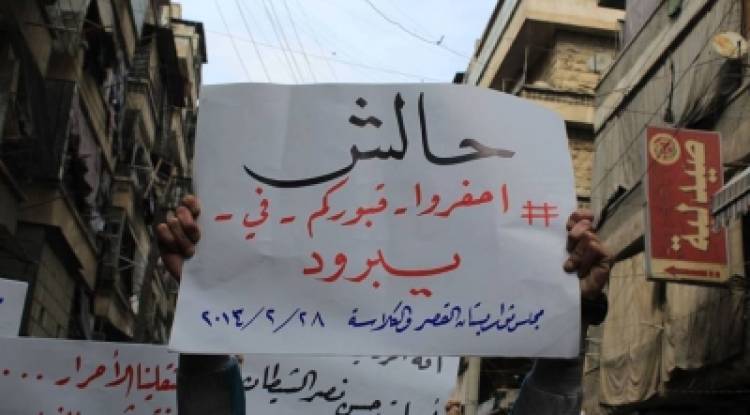 حالش
# احفروا - قبوركم - في -
يبرود
مجلس ثوار بستان القصر والكلاسة ٢٨/٢/٢٠١٤
صيدلية
الأحرار ...
نصر الشيطان
حسن